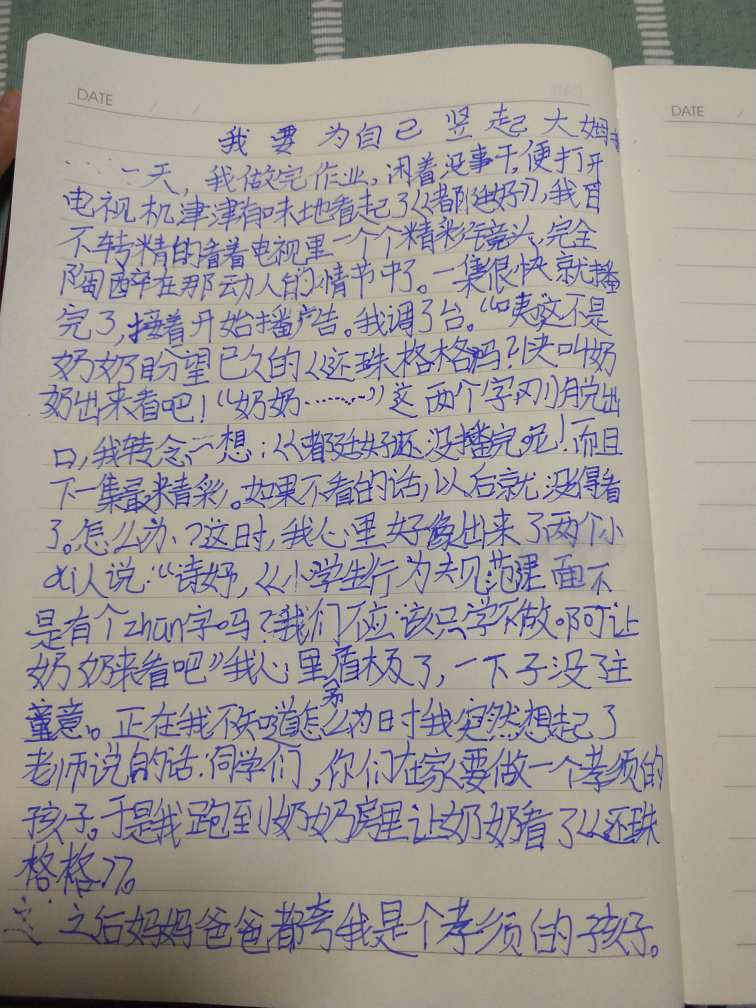 DATE / /
DATE /
我要为自己竖起大姆
一天，我做完作业，闲着没事干，便打开
电视机津津有味地看起了《都挺好》，我目
不转精的看着电视里一个个精彩镜头，完全
陶醉在那动人的情节中了。一集很快就播
完了，接着开始播广告。我调了台。“咦这不是
奶奶盼望已久的《还珠格格吗？！快叫奶
奶出来看吧！“奶奶……”这两个字刚脱出
口，我转念一想：《都廷好还没播完呢！而且
下一集最精彩。如果不看的话，以后就没得看
了。怎么办？这时，我心里好像出来了两个小
人说：“诗好，《小学生行为规范里面不
是有个zhan字吗？我们不应该只学不做啊可让
奶奶来看吧”我心里矛盾极了，一下子没了主
意。正在我不知道怎么办时我突然想起了
老师说的话：同学们，你们在家要做一个孝须的
孩子。于是我跑到奶奶房里让奶奶看了《还珠
格格》。
之后妈妈爸爸都夸我是个孝须的孩子。